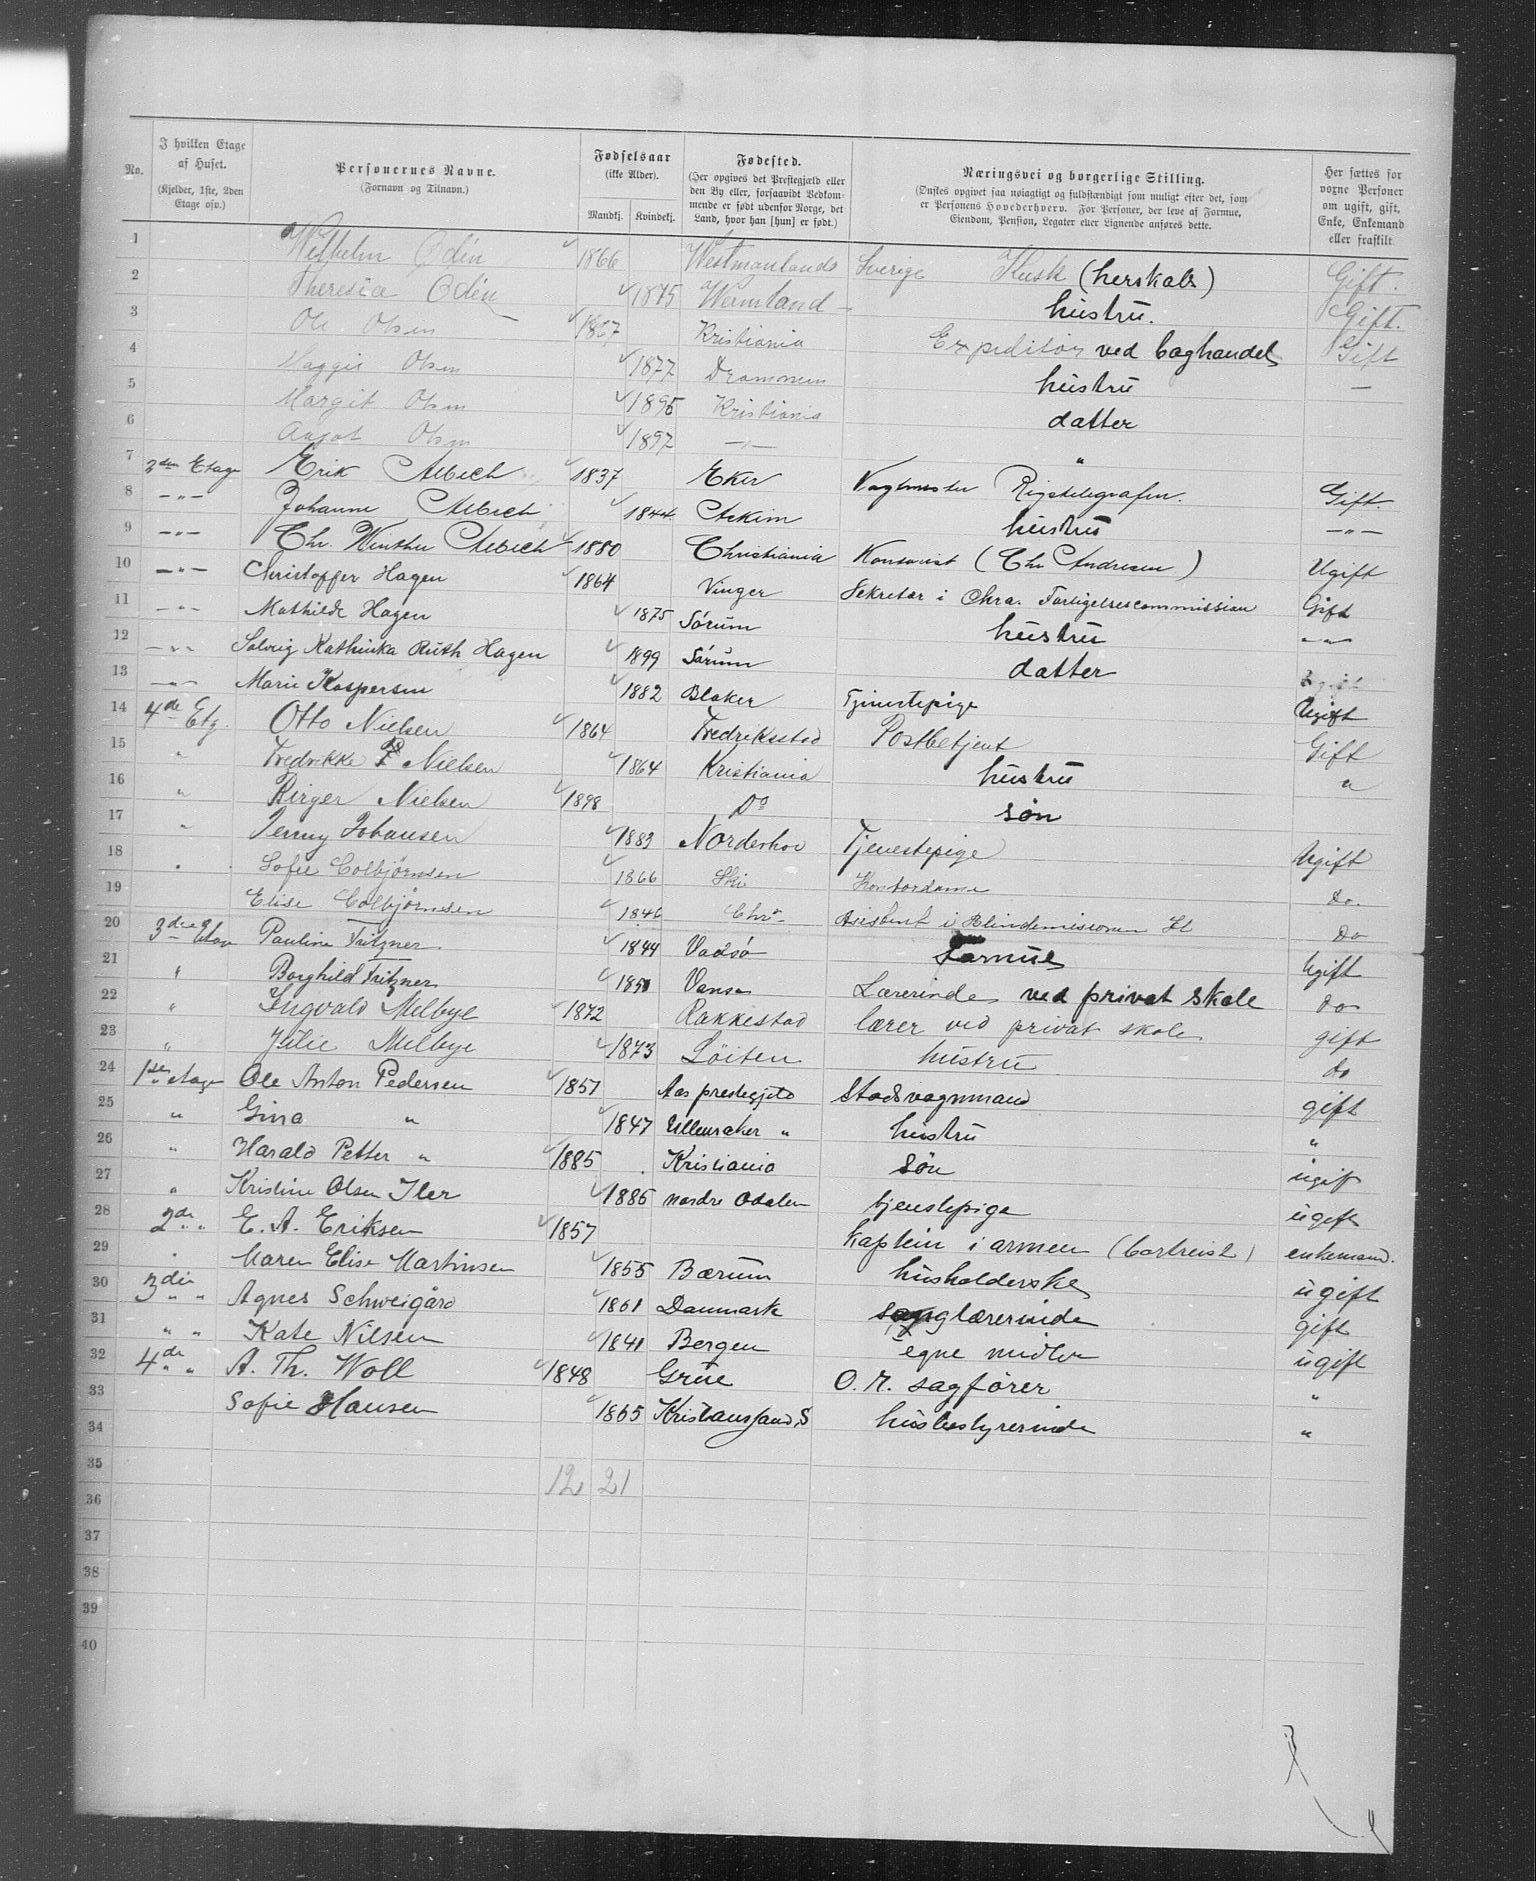 No. | I hvilken Etage af Huset. (Kjelder, 1ste, 2den Etage osv.) | Personernes Navne. (Fornavn og Tilnavn.) | Fødselsaar (ikke Alder). Mandkj. Kvindekj. | Fødested. (Her opgives det Prestegjæld eller den By eller, forsaavidt Vedkommende er født udenfor Norge, det Land, hvor han [hun] er født.) | Næringsvei og borgerlige Stilling. (Ønskes opgivet saa nøiagtigt og fuldstændigt som muligt efter det, som er Personens Hovederhverv. For Personer, der leve af Formue, Eiendom, Pension, Legater eller Lignende anføres dette. | Her sættes for voxne Personer om ugift, gift, Enke, Enkemand eller fraskilt.
1 Wilhelm Odin 1866 Westmanlands Sverige Kusk (herskabs) Gift.
2 Theresia Odin 1875 Wermland — hustru. Gift.
3 Ole Olsen 1867 Kristiania Expeditør ved baghandel Gift
4 Maggie Olsen 1877 Drammen hustru —
5 Margit Olsen 1895 Kristiania datter
6 Olsen 1897 —"— "
7 Etage Erik 1837 Eker Vagtmester Rigstelegrafen. Gift.
8 —"— Johanne 1844 Askim hustru —"—
9 —"— Chr. Winther 1880 Christiania Kontorist (Chr Andresen) Ugift
10 —"— Christoffer Hagen 1864 Vinger Sekretær i Chra. Forligelsescommission Gift
11 —"— Mathilde Hagen 1875 Sørum hustru —"—
12 —"— Solveig Kathinka Ruth Hagen 1899 Sørum datter
13 —"— Marie Kaspersen 1882 Blaker Tjenestepige Ugift
14 4de Etg. Otto Nielsen 1864 Fredriksstad Postbetjent Gift
15 " Fredrikke Nielsen 1864 Kristiania hustru "
16 " Birger Nielsen 1898 Do søn
17 " Jenny Johansen 1883 Norderhov Tjenestepige Ugift
18 " Sofie Colbjørnsen 1866 Ski Kontordame Do.
19 Elise Colbjørnsen 1846 Chra Asistent i Blindemissionen Do
20 3die Etage Pauline Fritzner 1844 Vadsø Formue Ugift
21 " Borghild Fritzner 1850 Vanse Lærerinde ved privat skole do
22 " Ingvald Melbye 1872 Rakkestad lærer ved privat skole gift
23 " Julie Melbye 1873 Løiten hustru do
24 1ste etage Ole Anton Pedersen 1851 Aas prestegjeld Stadsvognmand gift
25 " Gina " 1847 Ullensaker " hustru "
26 " Harald Petter " 1885 Kristiania søn ugift
27 " Kristine Olsen Iler 1885 nordre Odalen tjenstepige ugift
28 2de " " E. A. Eriksen 1857 kaptein i armeen (bortreist) enkemand.
29 " Maren Elise Martinsen 1855 Bærum husholderske ugift
30 3die " " Agnes Schweigård 1861 Danmark sanglærerinde gift
31 " " Kate Nilsen 1841 Bergen egne midler ugift
32 4de " " A. Th. Woll 1848 Grue O. R. sagfører "
33 Sofie Hansen 1865 Kristianssand S husbestyrerinde "
34
35 12 21
36
37
38
39
40